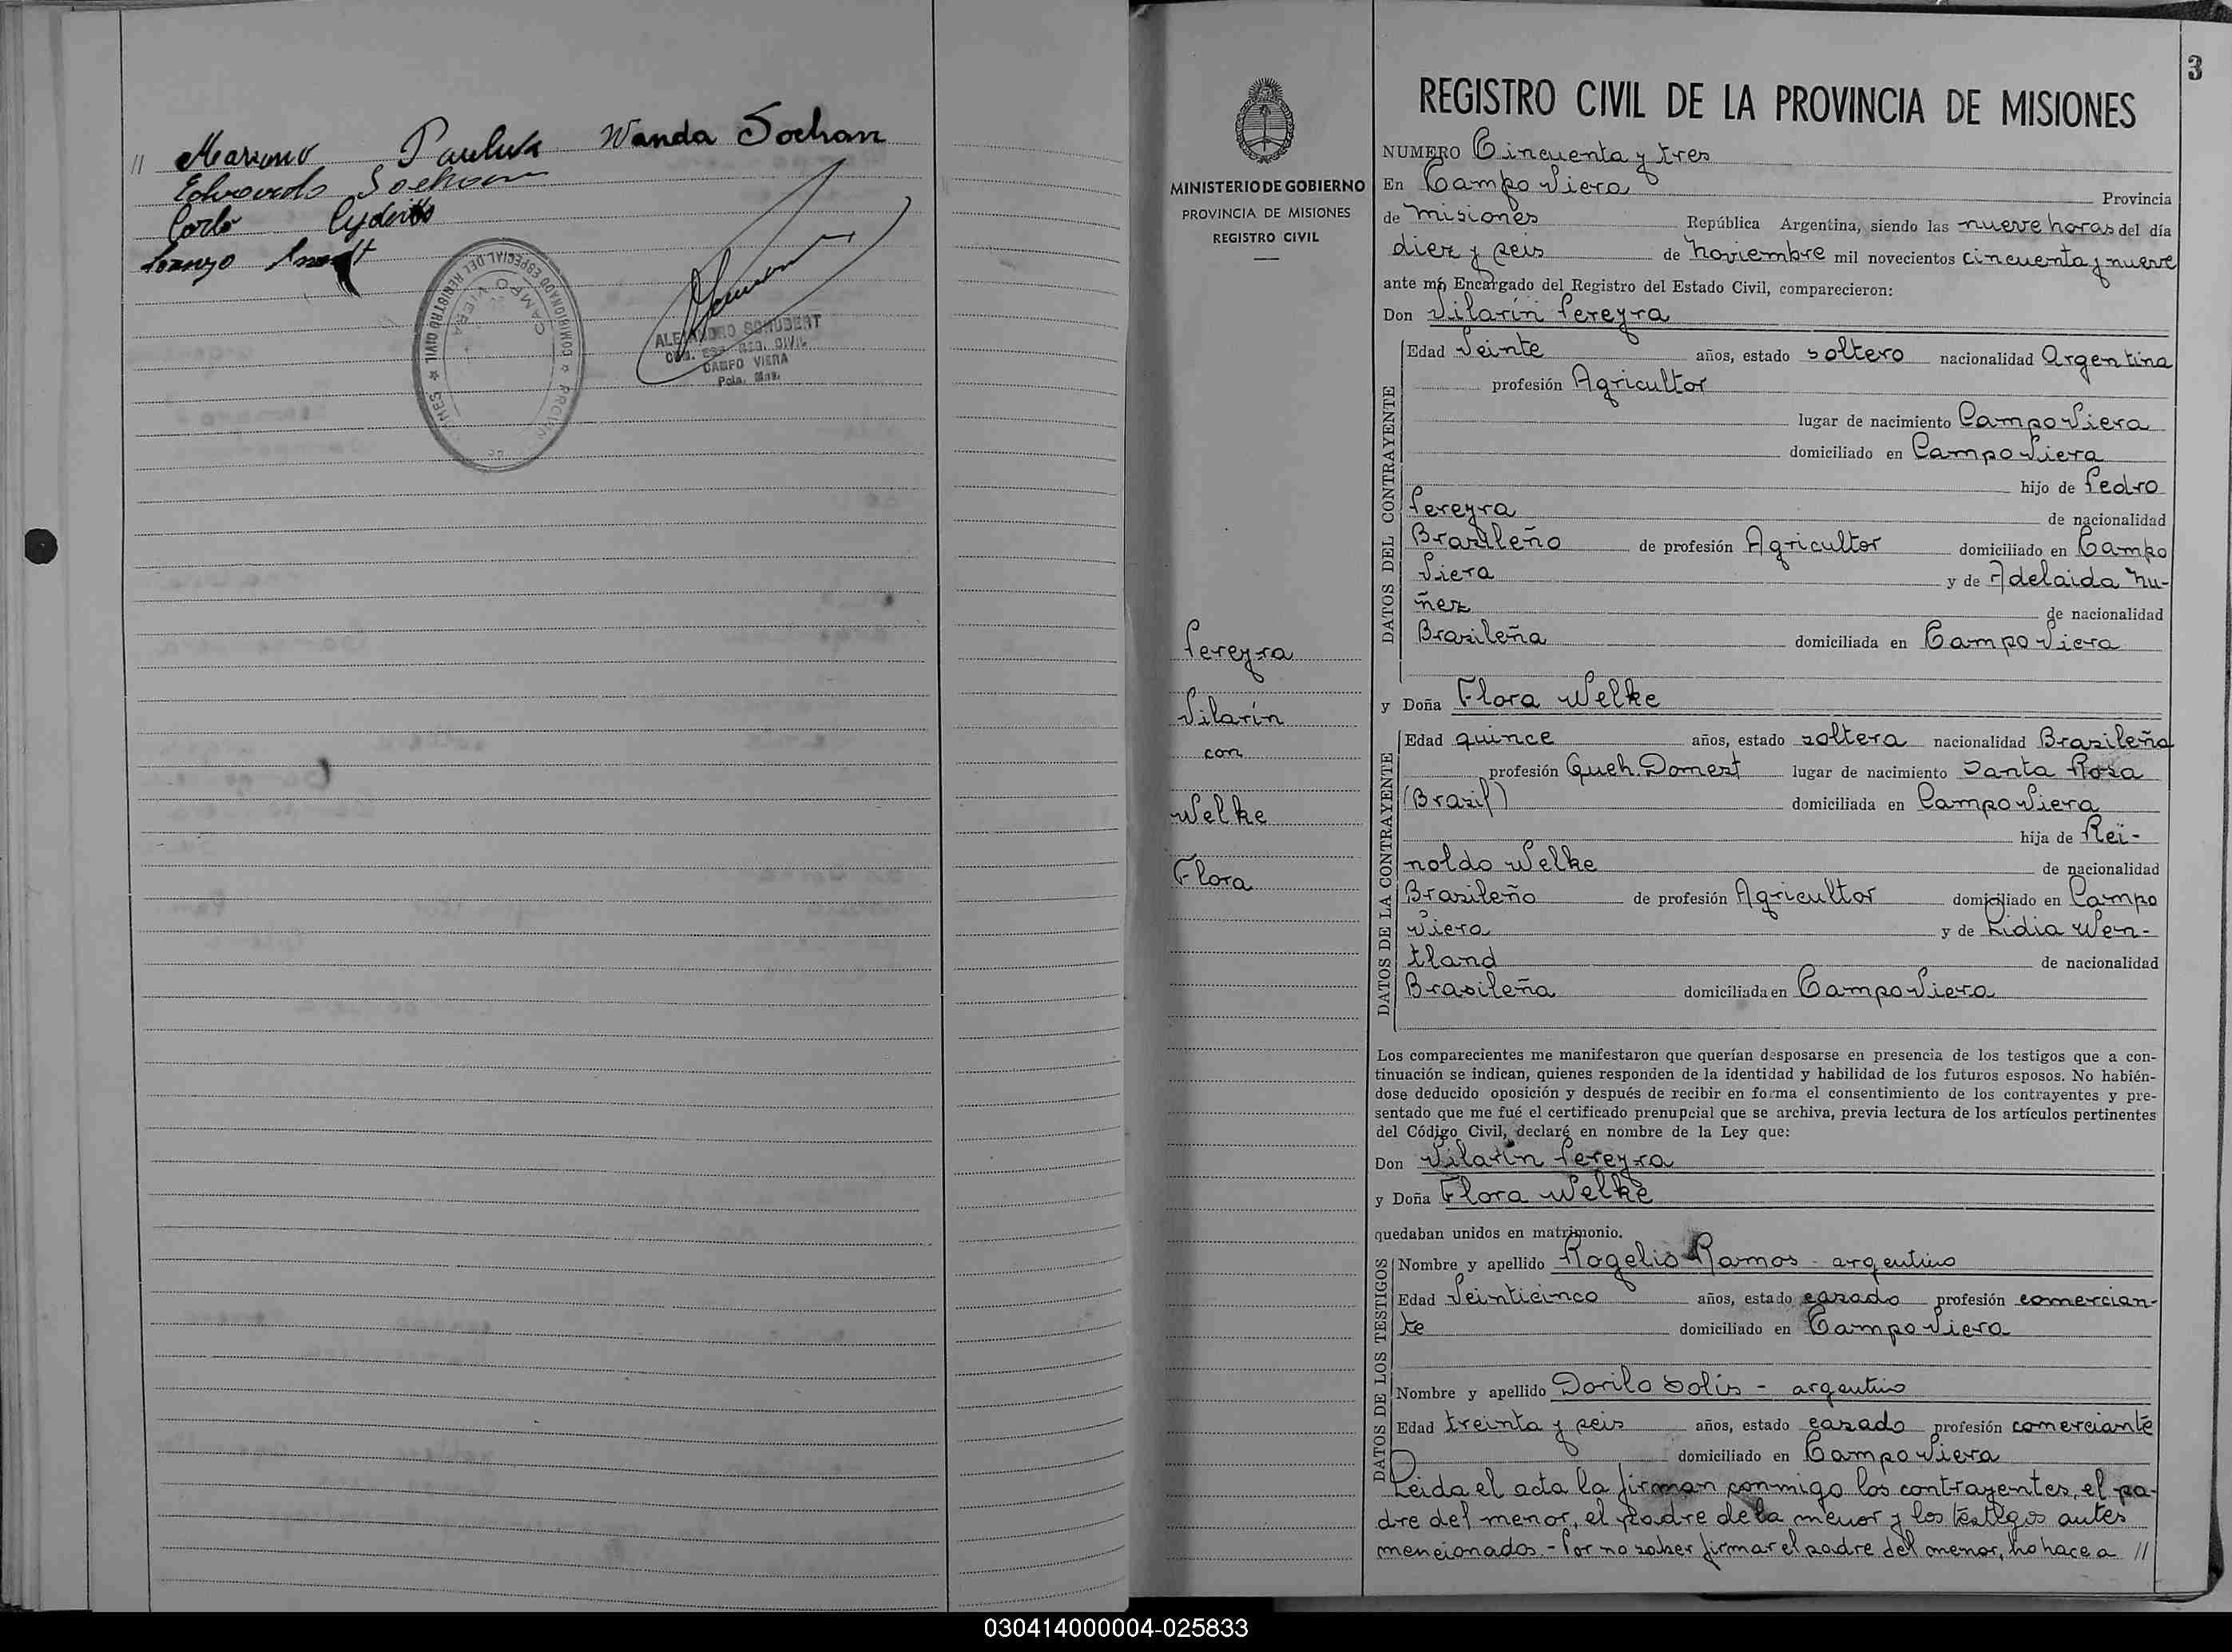 // Mariano Pauluk Wanda Sochan
Eduardo Sochan
Carlo
Lorenzo
COMISIONADO ESPECIAL DEL REGISTRO CIVIL
CAMPO VIERA
ALEJANDRO SCHUBERT
REG. CIVIL
CAMPO VIERA
Pcia. Mns.
3
MINISTERIO DE GOBIERNO
PROVINCIA DE MISIONES
REGISTRO CIVIL
Pereyra
Vilarín
con
Welke
Flora
REGISTRO CIVIL DE LA PROVINCIA DE MISIONES
NUMERO Cincuenta y tres
En Campo Viera Provincia
de Misiones República Argentina, siendo las nueve horas del día
diez y seis de Noviembre mil novecientos cincuenta y nueve
ante mí, Encargado del Registro del Estado Civil, comparecieron:
Don Vilarín Pereyra
DATOS DEL CONTRAYENTE
Edad Veinte años, estado soltero nacionalidad Argentina
profesión Agricultor
lugar de nacimiento Campo Viera
domiciliado en Campo Viera
hijo de Pedro
Pereyra de nacionalidad
Brasileño de profesión Agricultor domiciliado en Campo
Viera y de Adelaida Nu-
ñez de nacionalidad
Brasileña domiciliada en Campo Viera
y Doña Flora Welke
DATOS DE LA CONTRAYENTE
Edad quince años, estado soltera nacionalidad Brasileña
profesión Queh. Domest lugar de nacimiento Santa Rosa
(Brasil) domiciliada en Campo Viera
hija de Reï-
noldo Welke de nacionalidad
Brasileño de profesión Agricultor domiciliado en Campo
Viera y de Lidia Wen-
tland de nacionalidad
Brasileña domiciliada en Campo Viera
Los comparecientes me manifestaron que querían desposarse en presencia de los testigos que a con-
tinuación se indican, quienes responden de la identidad y habilidad de los futuros esposos. No habién-
dose deducido oposición y después de recibir en forma el consentimiento de los contrayentes y pre-
sentado que me fué el certificado prenupcial que se archiva, previa lectura de los artículos pertinentes
del Código Civil, declaré en nombre de la Ley que:
Don Vilarín Pereyra
y Doña Flora Welke
quedaban unidos en matrimonio.
DATOS DE LOS TESTIGOS
Nombre y apellido Rogelio Ramos - argentino
Edad Veinticinco años, estado casado profesión comercian-
te domiciliado en Campo Viera
Nombre y apellido Dorilo Solís - argentino
Edad treinta y seis años, estado casado profesión comerciante
domiciliado en Campo Viera
Leida el acta la firman conmigo los contrayentes, el pa-
dre del menor, el padre de la menor y los testigos antes
mencionados. - Por no saber firmar el padre del menor, lo hace a //
030414000004-025833